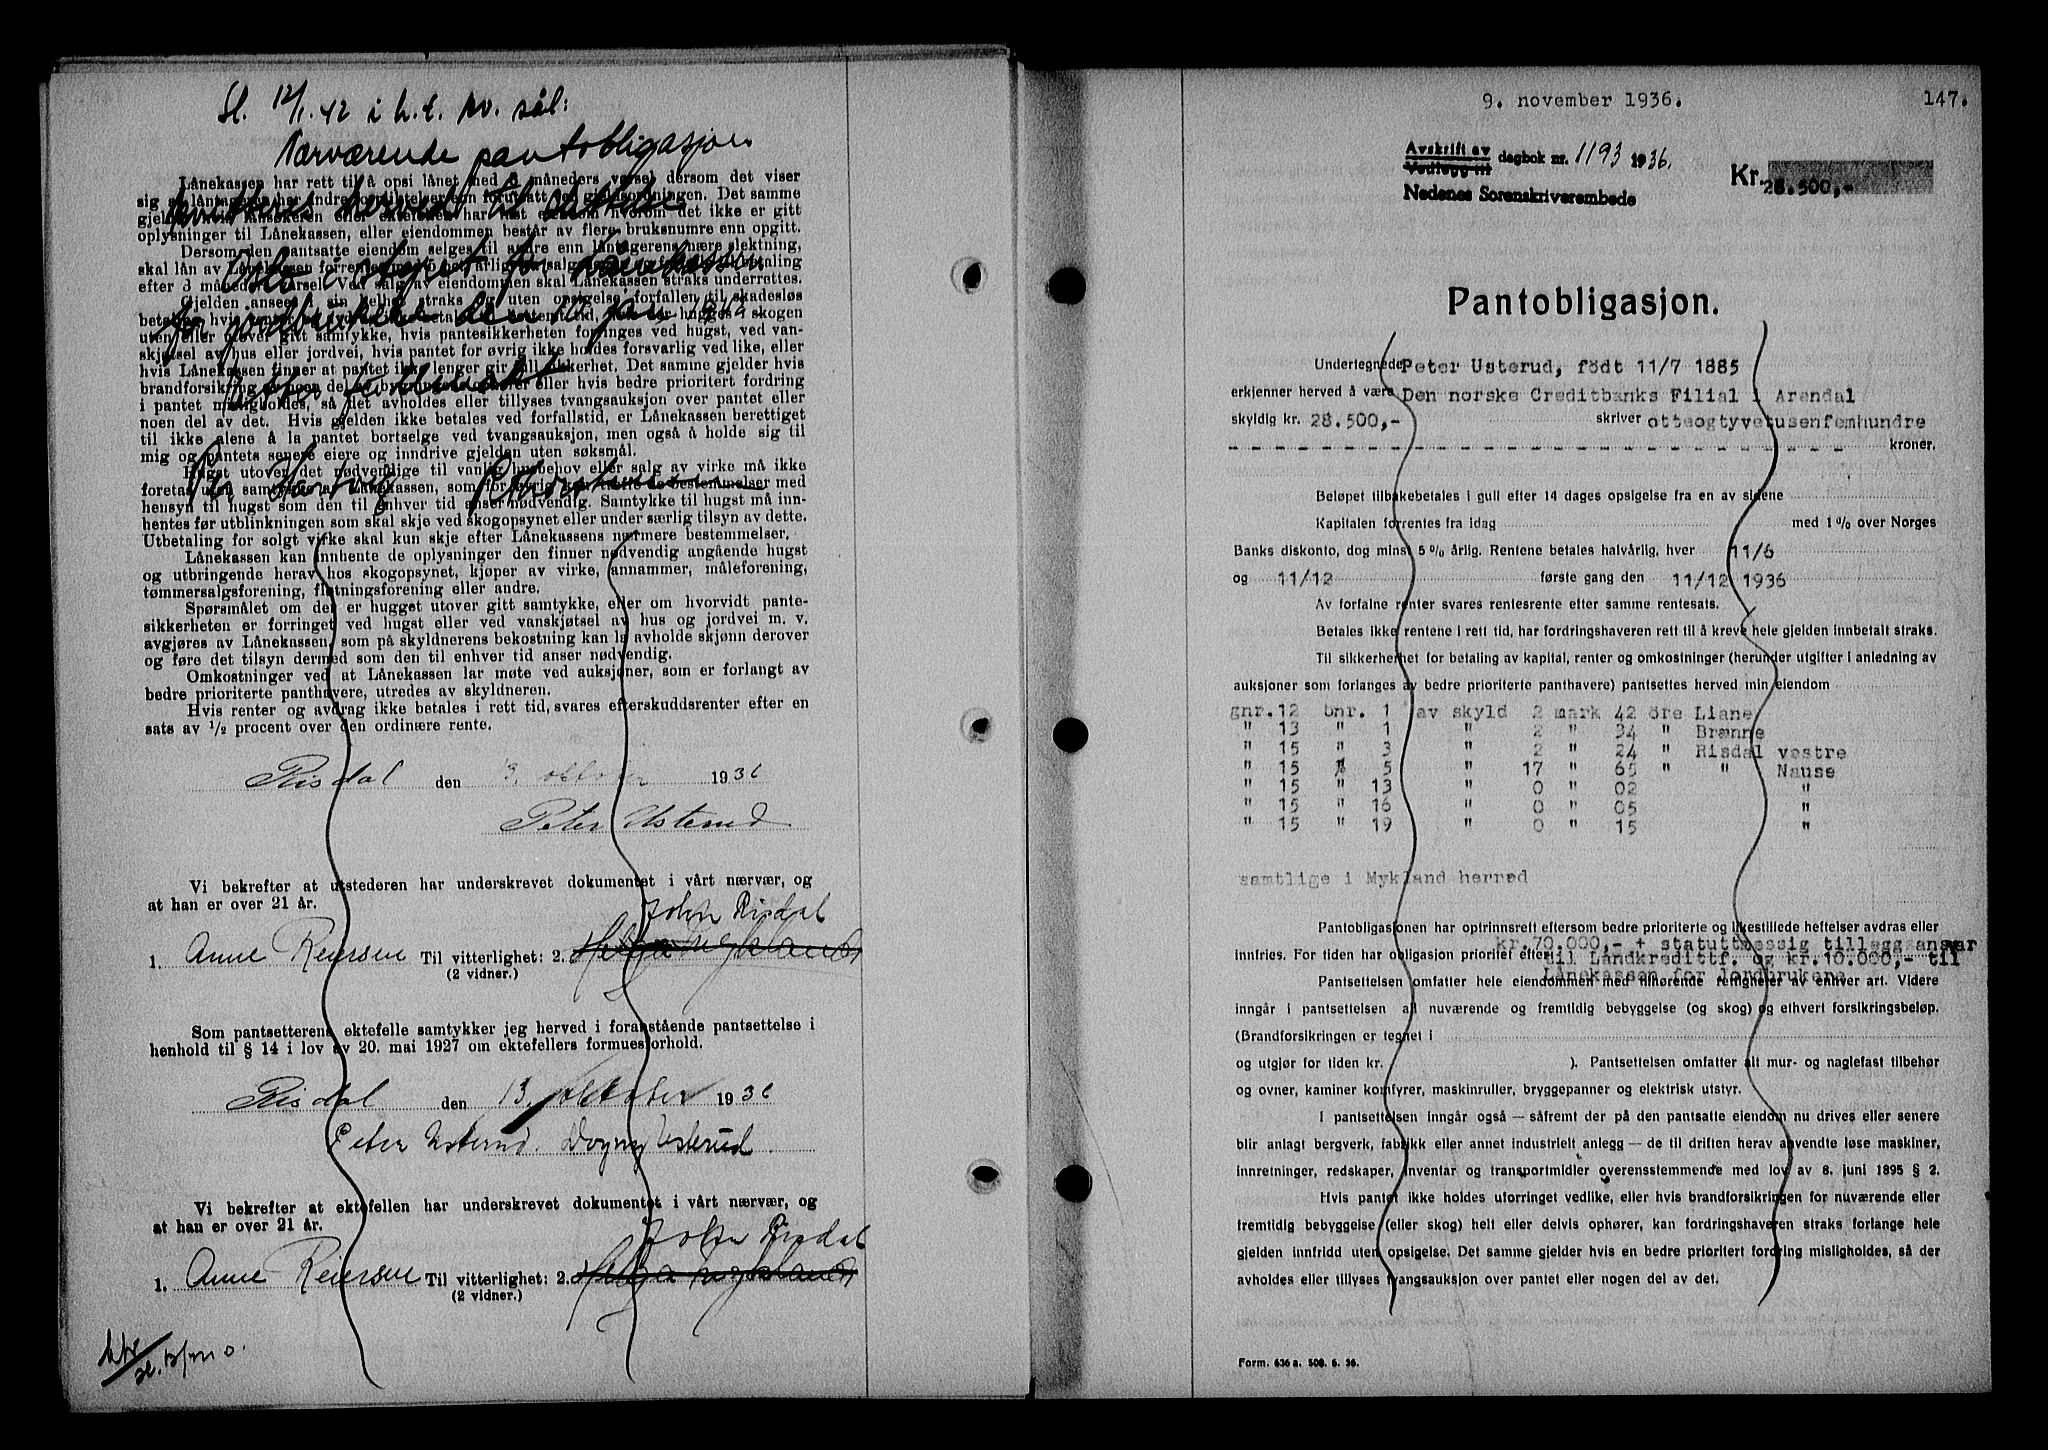 Sl. 12/1. 42 i h. t. kv. sål:
Nærværende pantobligasjon
kvitteres herved til slettelse
Oslo i styret for Lånekassen
for jordbrukere den 10 jan 1942
Etter fullmakt
Per Hartvig
Lånekassen har rett til å opsi lånet med 3 måneders varsel dersom det viser
sig at låntageren har andre forpliktelser enn forutsatt ved gjeldsordningen. Det samme
gjelder hvis låntageren eller ektefellen har hatt eiendom hvorom det ikke er gitt
oplysninger til Lånekassen, eller eiendommen består av flere bruksnumre enn opgitt.
Dersom den pantsatte eiendom selges til andre enn låntagerens nære slektning,
skal lån av Lånekassen forrentes med 5 pct. årlig fra salgsdagen og forfaller til betaling
efter 3 måneders varsel. Ved salg av eiendommen skal Lånekassen straks underrettes.
Gjelden ansees i sin helhet straks og uten opsigelse forfallen til skadesløs
betaling hvis renter og avdrag ikke betales i bestemt tid, eller der hugges i skogen
uten eller utover gitt samtykke, hvis pantesikkerheten forringes ved hugst, ved van-
skjøtsel av hus eller jordvei, hvis pantet for øvrig ikke holdes forsvarlig ved like, eller
hvis Lånekassen finner at pantet ikke lenger gir full sikkerhet. Det samme gjelder hvis
brandforsikring for noen del av bygningene ophører eller hvis bedre prioritert fordring
i pantet misligholdes, så det avholdes eller tillyses tvangsauksjon over pantet eller
noen del av det. Hvis gjelden ikke betales ved forfallstid, er Lånekassen berettiget
til ikke alene å la pantet bortselge ved tvangsauksjon, men også å holde sig til
mig og pantets senere eiere og inndrive gjelden uten søksmål.
Hugst utover det nødvendige til vanlig husbehov eller salg av virke må ikke
foretas uten samtykke av Lånekassen, som for øvrig kan treffe de bestemmelser med
hensyn til hugst som den til enhver tid anser nødvendig. Samtykke til hugst må inn-
hentes før utblinkningen som skal skje ved skogopsynet eller under særlig tilsyn av dette.
Utbetaling for solgt virke skal kun skje efter Lånekassens nærmere bestemmelser.
Lånekassen kan innhente de oplysninger den finner nødvendig angående hugst
og utbringende herav hos skogopsynet, kjøper av virke, annammer, måleforening,
tømmersalgsforening, fløtningsforening eller andre.
Spørsmålet om der er hugget utover gitt samtykke, eller om hvorvidt pante-
sikkerheten er forringet ved hugst eller ved vanskjøtsel av hus og jordvei m. v.
avgjøres av Lånekassen, som på skyldnerens bekostning kan la avholde skjønn derover
og føre det tilsyn dermed som den til enhver tid anser nødvendig.
Omkostninger ved at Lånekassen lar møte ved auksjoner, som er forlangt av
bedre prioriterte panthavere, utredes av skyldneren.
Hvis renter og avdrag ikke betales i rett tid, svares efterskuddsrenter efter en
sats av 1/2 procent over den ordinære rente.
Risdal den 13. oktober 1936
Peter Usterud
Vi bekrefter at utstederen har underskrevet dokumentet i vårt nærvær, og
at han er over 21 år.
John Risdal
1. Anne Reiersen Til vitterlighet: 2. Helga Mykland
(2 vidner.)
Som pantsetterens ektefelle samtykker jeg herved i foranstående pantsettelse i
henhold til § 14 i lov av 20. mai 1927 om ektefellers formuesforhold.
Risdal den 13. oktober 1936
Peter Usterud. Dogny Usterud.
Vi bekrefter at ektefellen har underskrevet dokumentet i vårt nærvær, og
at han er over 21 år.
John Risdal
1. Anne Reiersen Til vitterlighet: 2. Helga Mykland
(2 vidner.)
9. november 1936. 147.
Avskrift av
Vedlegg til dagbok nr. 1193 1936.
Nedenes Sorenskriverembede
Kr. 28.500,-
Pantobligasjon.
Undertegnede Peter Usterud, födt 11/7 1885
erkjenner herved å være Den norske Creditbanks Filial i Arendal
skyldig kr. 28.500,- skriver otteogtyvetusenfemhundre
kroner.
Beløpet tilbakebetales i gull efter 14 dages opsigelse fra en av sidene
Kapitalen forrentes fra idag med 1 % over Norges
Banks diskonto, dog minst 5 % årlig. Rentene betales halvårlig, hver 11/6
og 11/12 første gang den 11/12 1936
Av forfalne renter svares rentesrente efter samme rentesats.
Betales ikke rentene i rett tid, har fordringshaveren rett til å kreve hele gjelden innbetalt straks.
Til sikkerhet for betaling av kapital, renter og omkostninger (herunder utgifter i anledning av
auksjoner som forlanges av bedre prioriterte panthavere) pantsettes herved min eiendom
gnr. 12 bnr. 1 av skyld 2 mark 42 öre Liane
" 13 " 1 " 2 " 34 " Brænne
" 15 " 3 " 2 " 24 " Risdal vestre
" 15 " 5 " 17 " 65 " " Nause
" 15 " 13 " 0 " 02 "
" 15 " 16 " 0 " 05 "
" 15 " 19 " 0 " 15 "
samtlige i Mykland herred
Pantobligasjonen har optrinnsrett eftersom bedre prioriterte og likestillede heftelser avdras eller
innfries. For tiden har obligasjon prioritet efter kr.70.000,- + statuttmessig tilleggsansvar
til Låndkredittf. og kr.10.000,- til
Lånekassen for jordbrukere
Pantsettelsen omfatter hele eiendommen med tilhørende rettigheter av enhver art. Videre
inngår i pantsettelsen all nuværende og fremtidig bebyggelse (og skog) og ethvert forsikringsbeløp.
(Brandforsikringen er tegnet i
og utgjør for tiden kr. ). Pantsettelsen omfatter alt mur- og naglefast tilbehør
og ovner, kaminer komfyrer, maskinruller, bryggepanner og elektrisk utstyr.
I pantsettelsen inngår også — såfremt der på den pantsatte eiendom nu drives eller senere
blir anlagt bergverk, fabrikk eller annet industrielt anlegg — de til driften herav anvendte løse maskiner,
innretninger, redskaper, inventar og transportmidler overensstemmende med lov av 8. juni 1895 § 2.
Hvis pantet ikke holdes uforringet vedlike, eller hvis brandforsikringen for nuværende eller
fremtidig bebyggelse (eller skog) helt eller delvis ophører, kan fordringshaveren straks forlange hele
gjelden innfridd uten opsigelse. Det samme gjelder hvis en bedre prioritert fordring misligholdes, så der
avholdes eller tillyses tvangsauksjon over pantet eller nogen del av det.
Form. 636 a. 500. 6. 36.